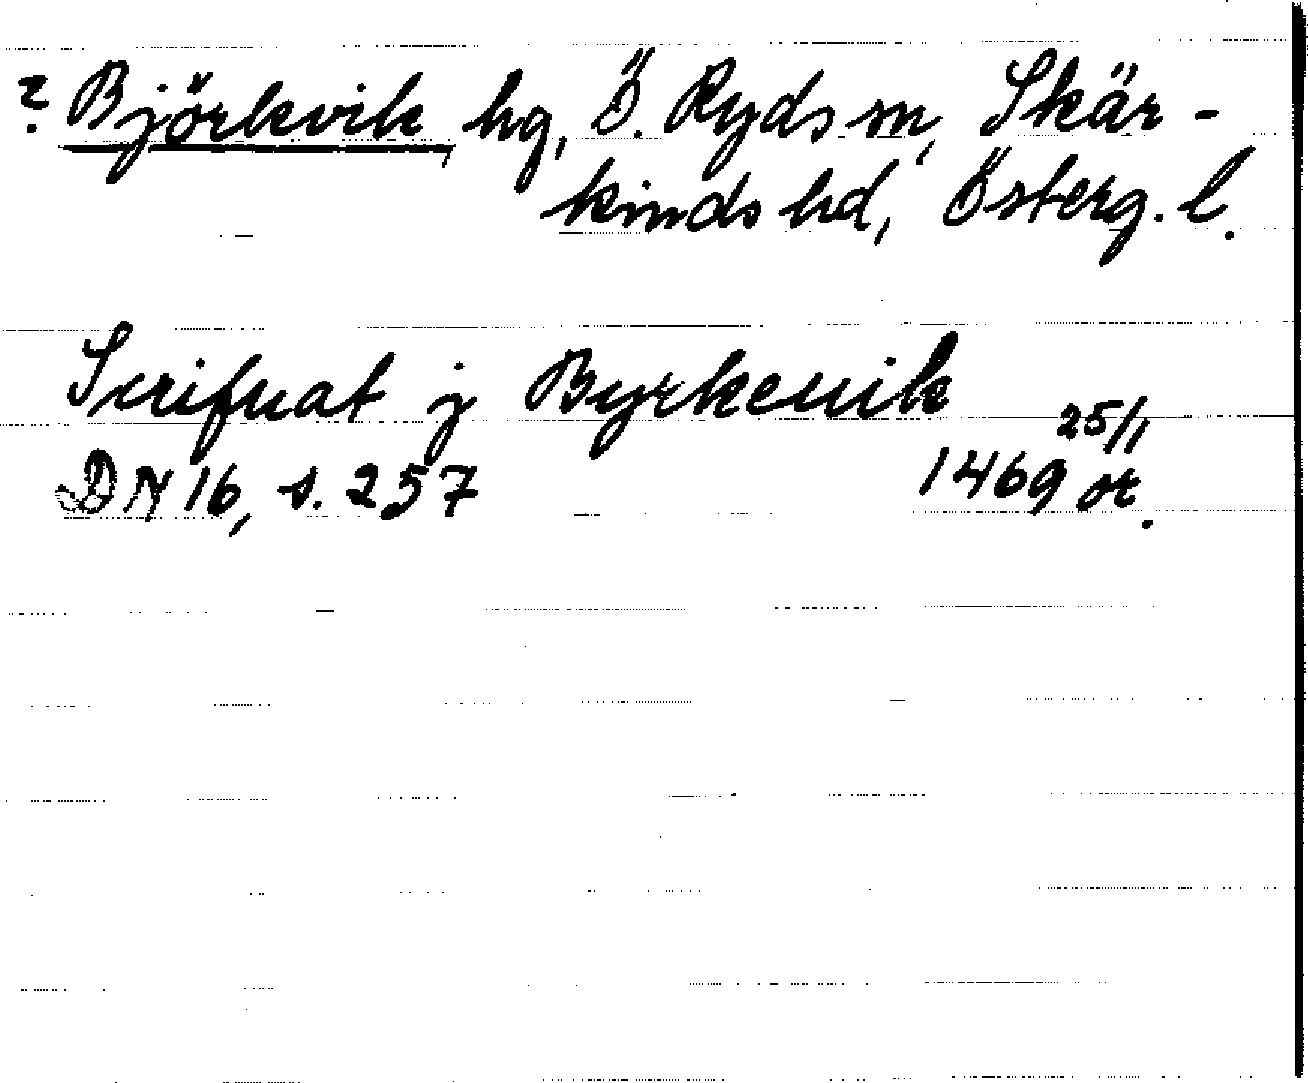 ? Björkvik, hg, Ö. Ryds sn, Skär-
kinds hd, Österg. l.
Scrifuat j Byrkeuik
25/1
DN 16, s. 257 1469 or.